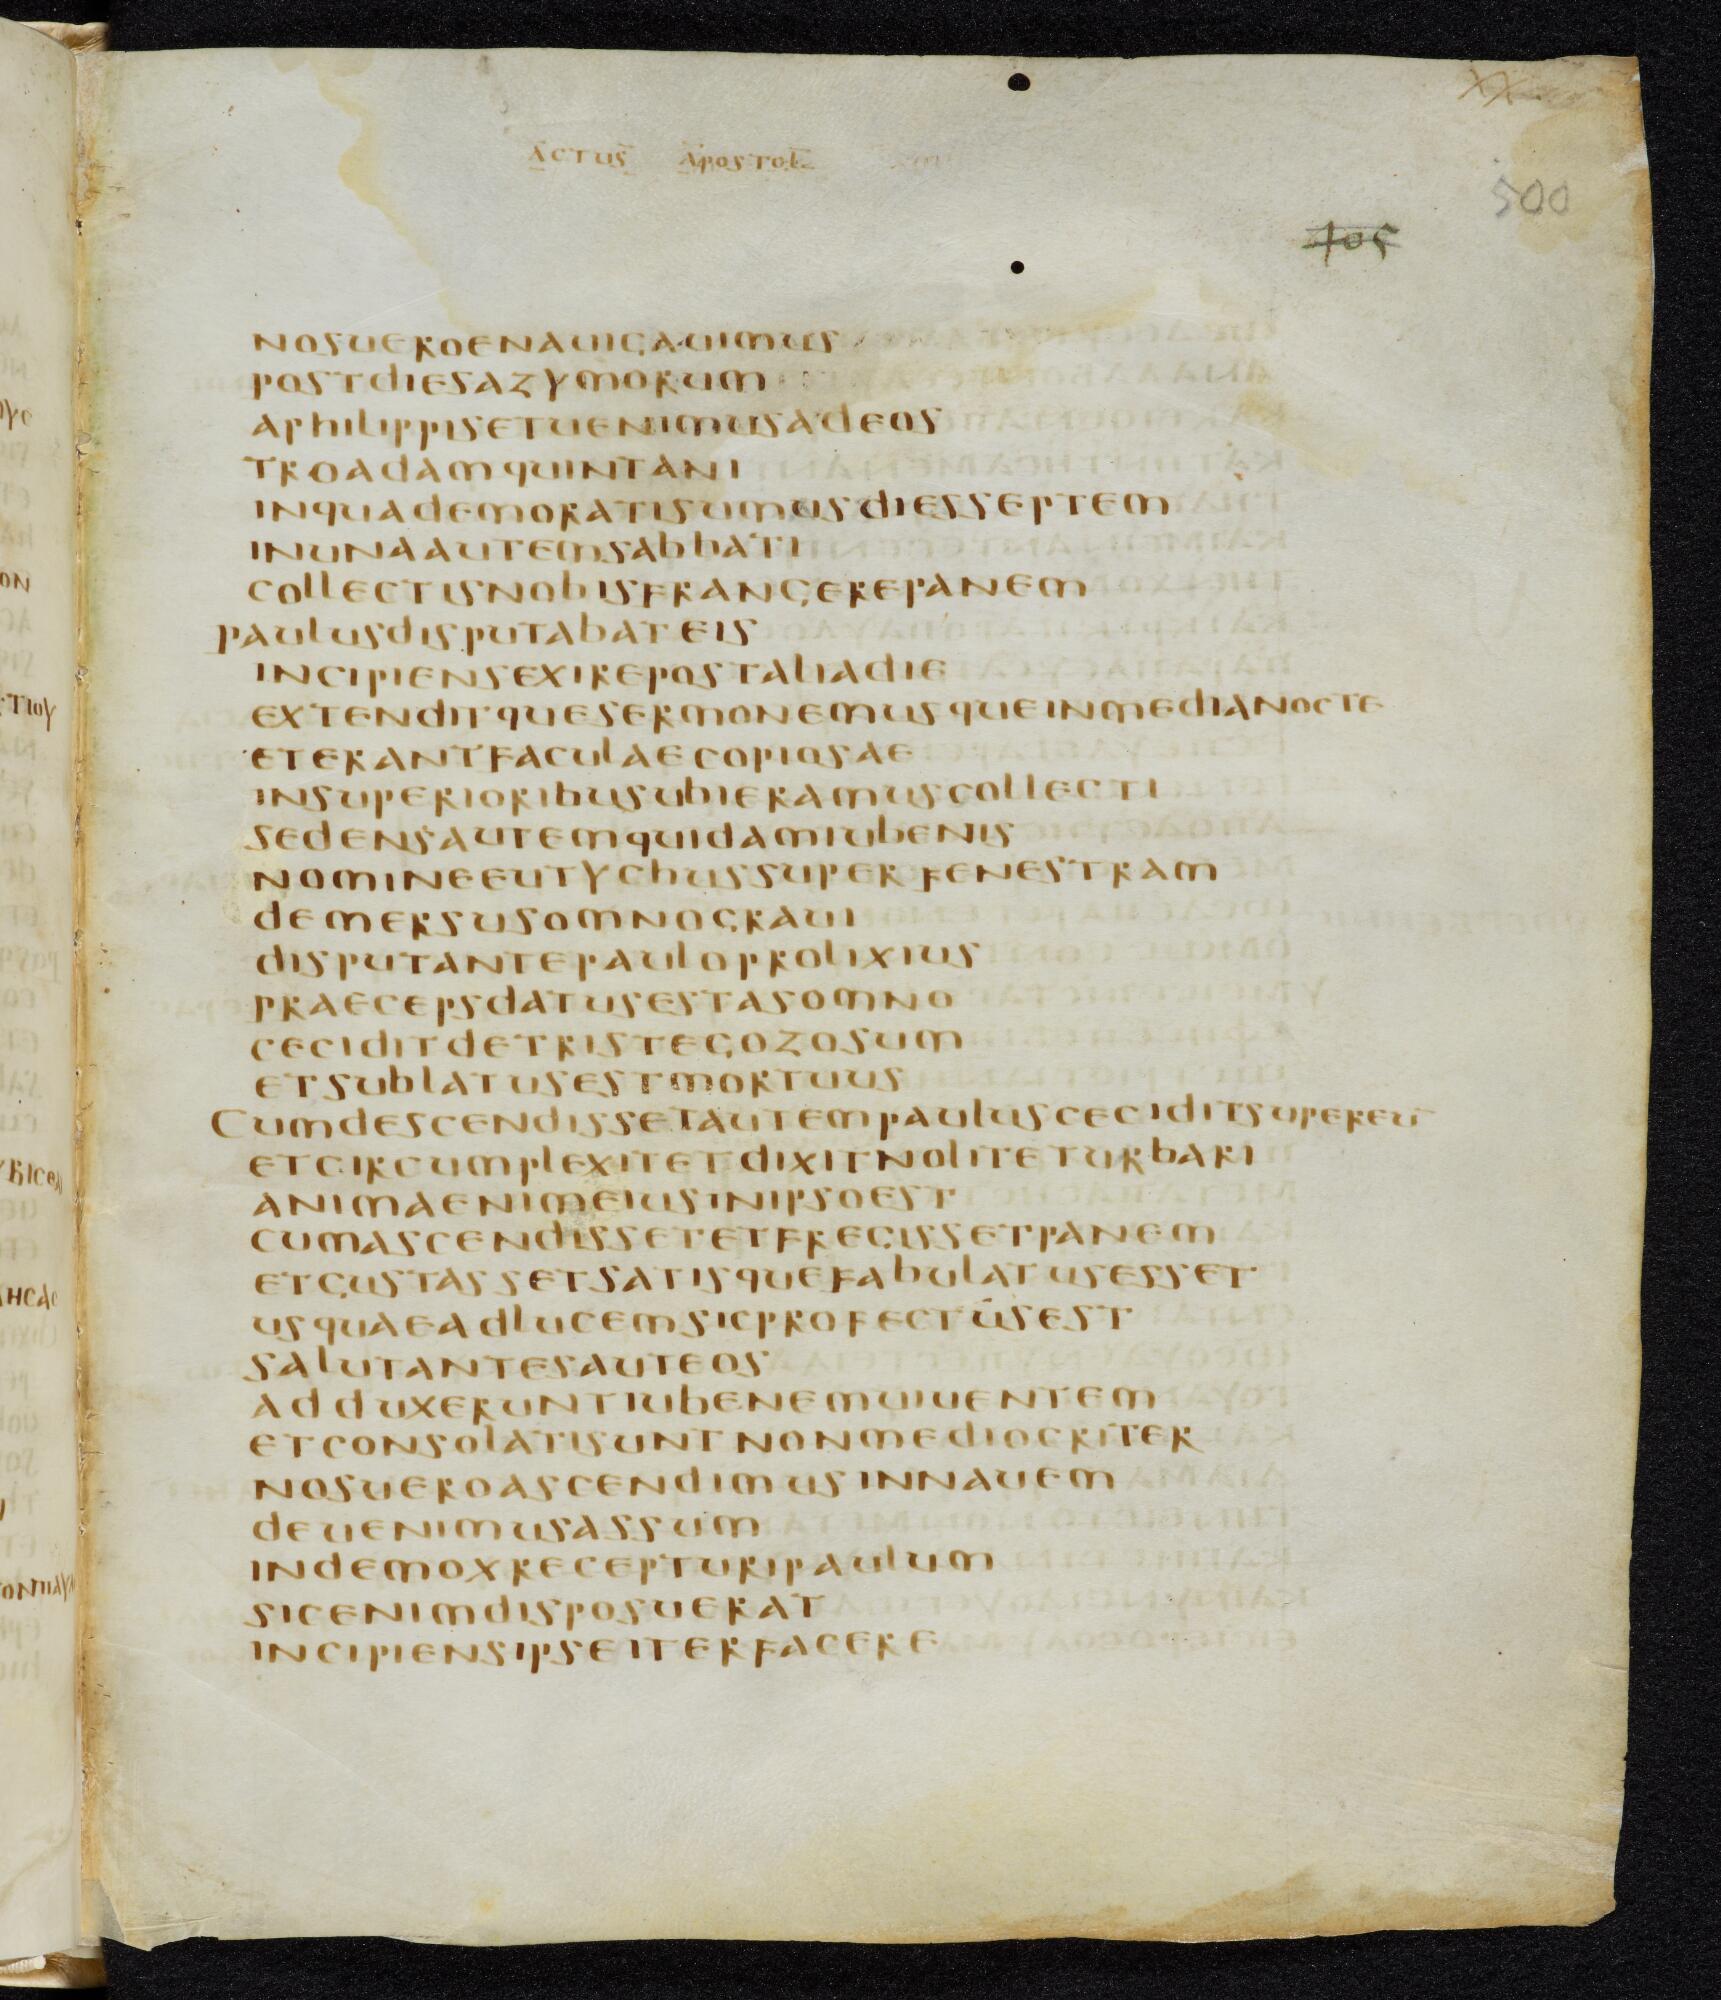 XX
ACTUS APOSTOL
500
405
NOSUEROENAUIGAUIMUS
POSTDIESAZYMORUM
APHILIPPISETUENIMUSADEOS
TROADAMQUINTANI
INQUADEMORATISUMUSDIESSEPTEM
INUNAAUTEMSABBATI
COLLECTISNOBISFRANGEREPANEM
PAULUSDISPUTABATEIS
INCIPIENSEXIREPOSTALIADIE
EXTENDITQUESERMONEMUSQUEINMEDIANOCTE
ETERANTFACULAECOPIOSAE
INSUPERIORIBUSUBIERAMUSCOLLECTI
SEDENSAUTEMQUIDAMIUBENIS
NOMINEEUTYCHUSSUPERFENESTRAM
DEMERSUSOMNOGRAUI
DISPUTANTEPAULOPROLIXIUS
PRAECEPSDATUSESTASOMNO
CECIDITDETRISTEGOZOSUM
ETSUBLATUSESTMORTUUS
CUMDESCENDISSETAUTEMPAULUSCECIDITSUPEREŪ
ETCIRCUMPLEXITETDIXITNOLITETURBARI
ANIMAENIMEIUSINIPSOEST
CUMASCENDISSETETFREGISSETPANEM
ETGUSTASSETSATISQUEFABULATUSESSET
USQUAEADLUCEMSICPROFECTUSEST
SALUTANTESAUTEOS
ADDUXERUNTIUBENEMUIUENTEM
ETCONSOLATISUNTNONMEDIOCRITER
NOSUEROASCENDIMUSINNAUEM
DEUENIMUSASSUM
INDEMOXRECEPTURIPAULUM
SICENIMDISPOSUERAT
INCIPIENSIPSEITERFACERE